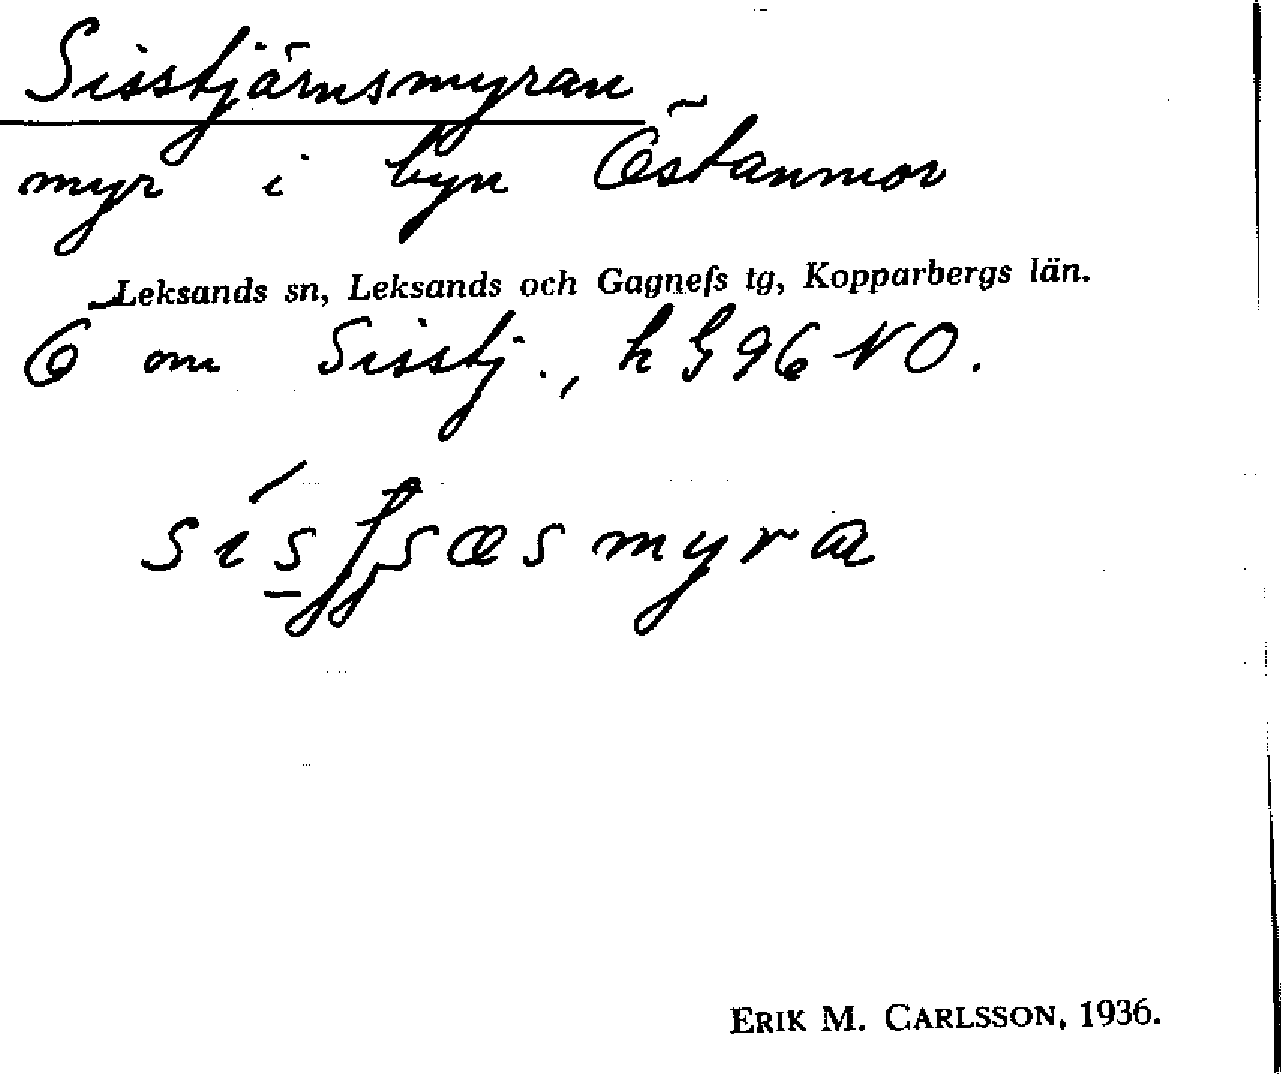 Sisstjärnsmyran
myr i byn Östanmor
Leksands sn, Leksands och Gagnefs tg, Kopparbergs län.
Ö om Sisstj., h G 96 NO.
ERIK M. CARLSSON, 1936.